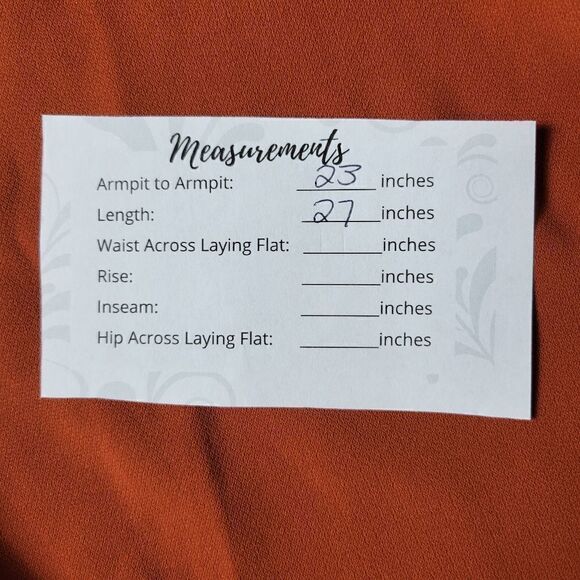 Measurements
Armpit to Armpit: 23 inches
Length: 27 inches
Waist Across Laying Flat: ________ inches
Rise: ________ inches
Inseam: ________ inches
Hip Across Laying Flat: ________ inches